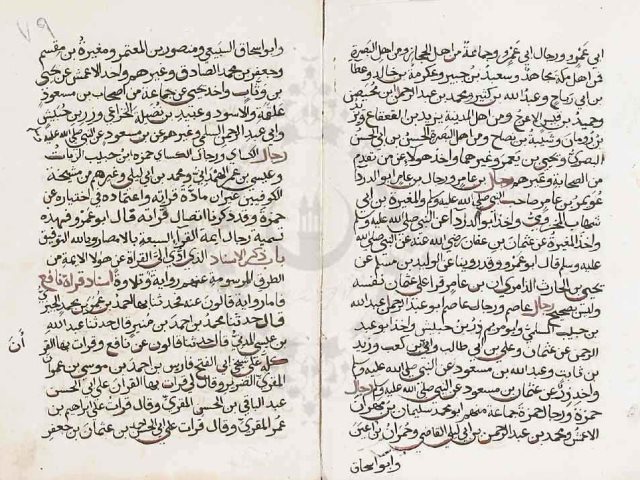 ابى عمرو ورجال ابى عمرو جماعة من اهل الحجاز ومن اهل البصرة
فمن اهل مكة مجاهد وسعيد بن جبير وعكرمة بن خالد وعطا
بن ابى رباح وعبد الله بن كثير ومحمد بن عبد الرحمن ابن محيصن
وحميد بن قيس الاعرج ومن اهل المدينة يزيد بن القعقاع ويزيد
بن رومان وشيبة بن نصاح ومن اهل البصرة الحسن بن ابى الحسن
البصرى ويحيى بن يعمر وغيرهما واخذ هولا عن من تقدم
من الصحابة وغيرهم رجال بن عامر ورجال بن عامر ابو الدردا
عويمر بن عامر صاحب النبى صلى الله عليه وسلم والمغيرة بن ابى
شهاب المخزومى واخذ ابو الدردا عن النبى صلى الله عليه وسلم
واخذ المغيرة عن عثمان بن عفان رضى الله عنه عن النبى صلى الله
عليه وسلم قال ابو عمرو وقد روينا عن الوليد بن مسلم عن
يحيى بن الحارث الذمارى ان بن عامر قرا على عثمان نفسه
وليس بصحيح رجال عاصم ورجال عاصم ابو عبد الرحمن عبد الله
بن حبيب السلمى وابو مريم زر بن حبيش واخذ ابو عبد
الرحمن عن عثمان وعلى بن ابى طالب وابى بن كعب وزيد
بن ثابت وعبد الله بن مسعود عن النبى صلى الله عليه وسلم
واخذ زر عن عثمان بن مسعود عن النبى صلى الله عليه وسلم رجال
حمزة ورجال حمزة جماعة منهم ابو محمد سليمان بن مهران
الاعمش ومحمد بن عبد الرحمن بن ابى ليلى القاضى وحمران بن اعين
وابو اسحاق
٧٩
وابو اسحاق السبيعى ومنصور بن المعتمر ومغيرة بن مقسم
وجعفر بن محمد الصادق وغيرهم واخذ الاعمش عن يحيى
بن وثاب واخذ يحيى عن جماعة من اصحاب بن مسعود
علقمة والاسود وعبيد بن نضيلة الخزاعى وزر بن حبيش
وابى عبد الرحمن السلمى وغيرهم عن بن مسعود عن النبى صلى الله عليه
رجال الكساى ورجال الكساى حمزة بن حبيب الزيات
وعيسى بن عمر الهمدانى ومحمد بن ابى ليلى وغيرهم من مشيخة
الكوفيين غير ان مادة قراته واعتماده فى اختياره عن
حمزة وقد ذكرنا اتصال قراته قال ابو عمرو فهذه
تسمية رجال ايمة القرا السبعة بالامصار وبالله التوفيق
باب ذكر الاسناد الذى ادى الى القراة عن هولا الايمة من
الطرق المرسومة عنهم رواية وتلاوة اسناد قراة نافع
فاما رواية قالون عنه فحدثنا بها احمد بن عمر بن محمد الجيزى
قال حدثنا محمد بن احمد بن منير قال حدثنا عبد الله
بن عيسى المدنى قال حدثنا قالون عن نافع وقرات بها القران
كله على شيخى ابى الفتح فارس بن احمد بن موسى بن عمران
المقرى الضرير وقال لى قرات بها القران على ابى الحسن
عبد الباقى بن الحسن المقرى وقال قرات على ابراهيم بن
عمر المقرى وقال قرات على ابى الحسين احمد بن عثمان بن جعفر